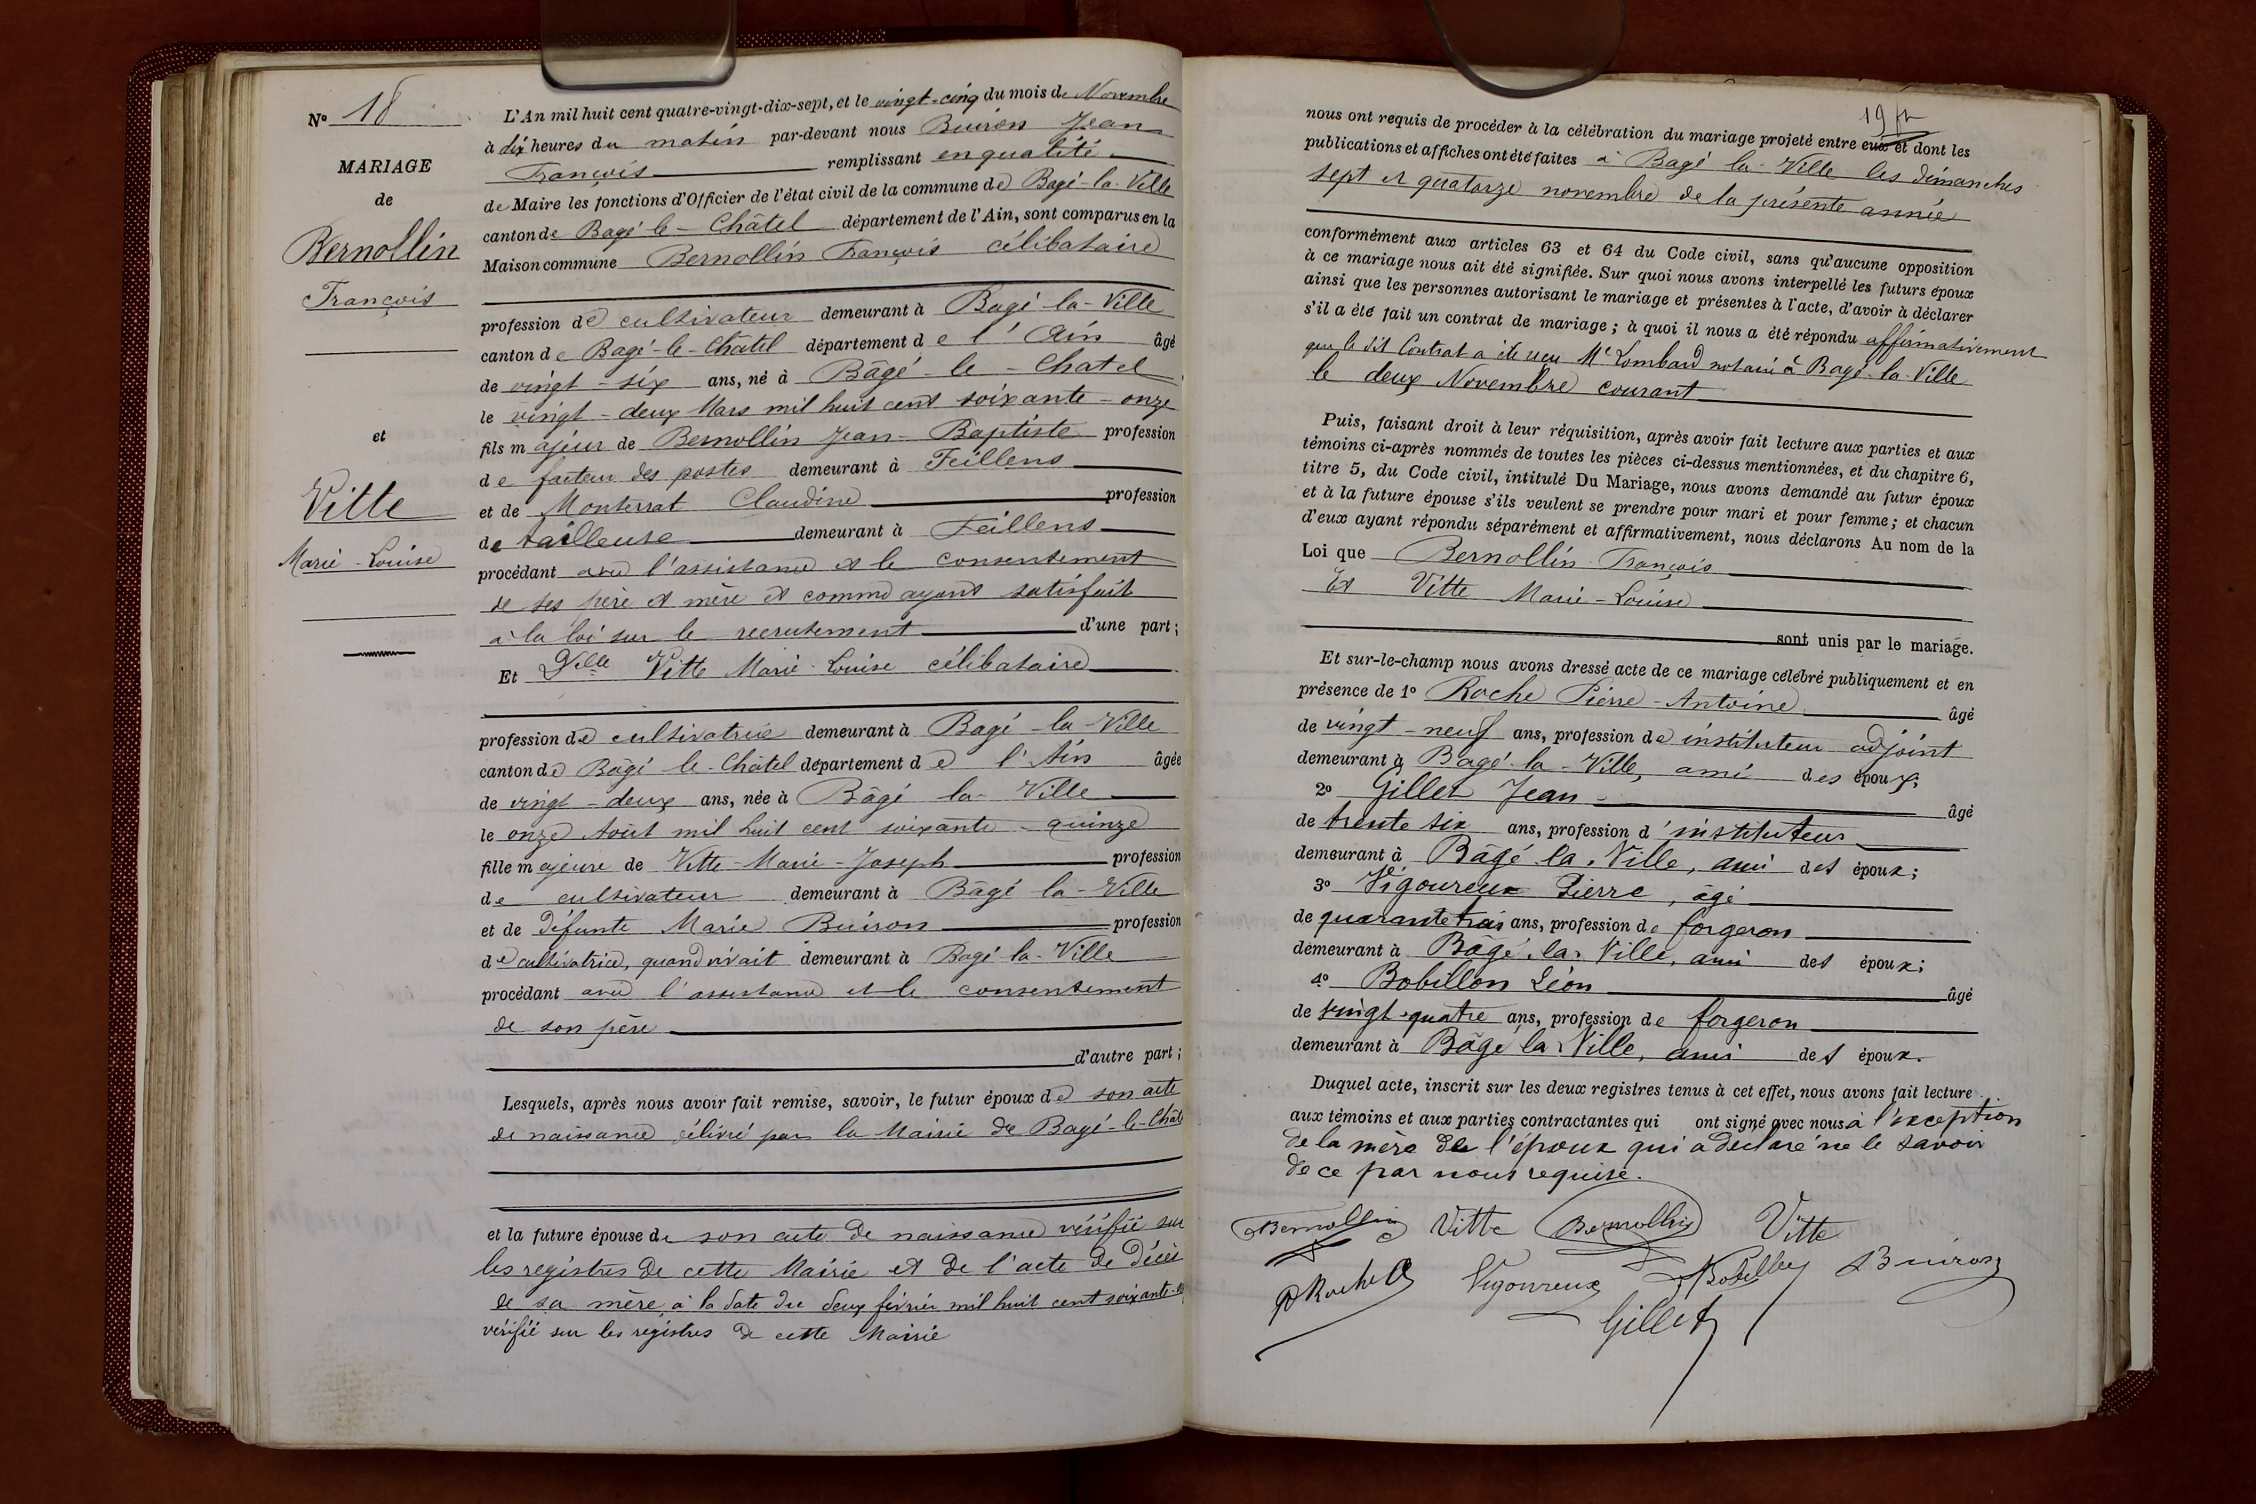 Nº 18
MARIAGE
de
Bernollin
François
et
Vitte
Marie-Louise
L'An mil huit cent quatre-vingt-dix-sept, et le vingt-cinq du mois de Novembre
à dix heures du matin par-devant nous Buiron Jean
François remplissant en qualité
de Maire les fonctions d'Officier de l'état civil de la commune de Bagé-la-Ville
canton de Bagé-le-Châtel département de l'Ain, sont comparus en la
Maison commune Bernollin François célibataire
profession de cultivateur demeurant à Bagé-la-Ville
canton de Bagé-le-Chatel département de l'Ain âgé
de vingt-six ans, né à Bâgé-le-Chatel
le vingt-deux Mars mil huit cent soixante-onze
fils majeur de Bernollin Jean-Baptiste profession
de facteur des postes demeurant à Feillens
et de Monterrat Claudine profession
de tailleuse demeurant à Feillens
procédant avec l'assistance et le consentement
de ses père et mère et comme ayant satisfait
à la loi sur le recrutement d'une part;
Et Dlle Vitte Marie-Louise célibataire
profession de cultivatrice demeurant à Bagé-la-Ville
canton de Bâgé le-Châtel département de l'Ain âgée
de vingt-deux ans, née à Bâgé la-Ville
le onze Août mil huit cent soixante-quinze
fille majeure de Vitte-Marie-Joseph profession
de cultivateur demeurant à Bâgé la-Ville
et de défunte Marie Buiron profession
de cultivatrice, quand vivait demeurant à Bagé-la-Ville
procédant avec l'assistance et le consentement
de son père
d'autre part;
Lesquels, après nous avoir fait remise, savoir, le futur époux de son acte
de naissance délivré par la Mairie de Bagé-le-Chât
et la future épouse de son acte de naissance vérifié sur
les registres de cette Mairie et de l'acte de décès
de sa mère à la date du deux février mil huit cent soixante-
vérifié sur les registres de cette Mairie
19
nous ont requis de procéder à la célébration du mariage projeté entre eux et dont les
publications et affiches ont été faites à Bagé la-Ville les dimanches
sept et quatorze novembre de la présente année
conformément aux articles 63 et 64 du Code civil, sans qu'aucune opposition
à ce mariage nous ait été signifiée. Sur quoi nous avons interpellé les futurs époux
ainsi que les personnes autorisant le mariage et présentes à l'acte, d'avoir à déclarer
s'il a été fait un contrat de mariage; à quoi il nous a été répondu affirmativement
que le dit Contrat a été reçu Me Lombard notaire à Bagé-la-Ville
le deux Novembre courant
Puis, faisant droit à leur réquisition, après avoir fait lecture aux parties et aux
témoins ci-après nommés de toutes les pièces ci-dessus mentionnées, et du chapitre 6,
titre 5, du Code civil, intitulé Du Mariage, nous avons demandé au futur époux
et à la future épouse s'ils veulent se prendre pour mari et pour femme; et chacun
d'eux ayant répondu séparément et affirmativement, nous déclarons Au nom de la
Loi que Bernollin François
Et Vitte Marie-Louise
sont unis par le mariage.
Et sur-le-champ nous avons dressé acte de ce mariage célébré publiquement et en
présence de 1º Roche Pierre-Antoine âgé
de vingt-neuf ans, profession de instituteur adjoint
demeurant à Bagé-la-Ville, ami des époux;
2º Gillet Jean âgé
de trente six ans, profession d'instituteur
demeurant à Bâgé la Ville, ami des époux;
3º Vigoureux Pierre, âgé
de quarante trois ans, profession de forgeron
demeurant à Bâgé la Ville, ami des époux;
4º Bobillon Léon âgé
de vingt-quatre ans, profession de forgeron
demeurant à Bâgé la Ville, ami des époux.
Duquel acte, inscrit sur les deux registres tenus à cet effet, nous avons fait lecture
aux témoins et aux parties contractantes qui ont signé avec nous à l'exception
de la mère de l'époux qui a déclaré ne le savoir
de ce par nous requise.
Bernollin Vitte Bernollin Vitte
Roche Vigoureux Buiron
Gillet